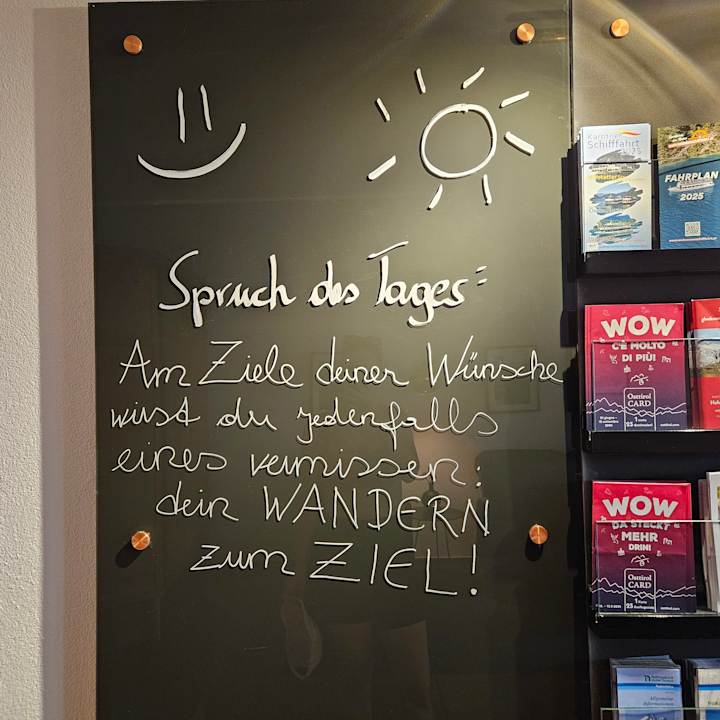 Spruch des Tages:
Am Ziele deiner Wünsche
wirst du jedenfalls
eines vermissen:
dein WANDERN
zum ZIEL!
Schifffahrt
FAHRPLAN
2025
WOW
C'È MOLTO
DI PIÙ!
Osttirol
CARD
WOW
DA STECKT
MEHR
DRIN!
Osttirol
CARD